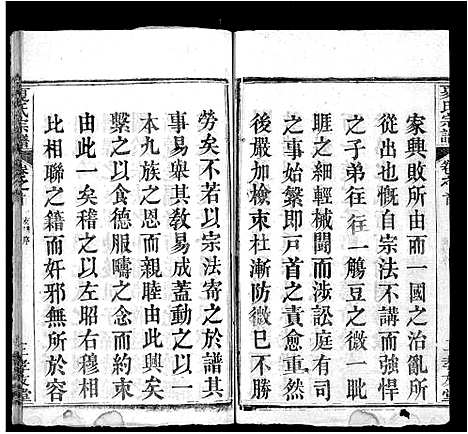 家興敗所由而一國之治亂所
從出也慨自宗法不講而強悍
之子弟往往一觴豆之微一眦
睚之細機械鬪而涉訟庭有司
之事始繁即戸首之責愈重而
後嚴加檢束杜漸防微已不勝
勞矣不若以宗法寄之於譜其
事易舉其教易成蓋動之以一
本九族之恩而親睦由此興矣
繫之以食德服疇之念而約束
由此一矣稽之以左昭右穆相
比相聯之籍而奸邪無所於容
氏宗譜
卷之首
氏宗譜
卷之首